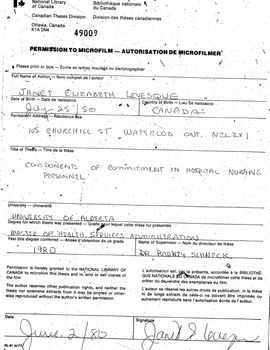 National Library of Canada Bibliothèque nationale du Canada
Canadian Theses Division Division des thèses canadiennes
Ottawa, Canada
K1A 0N4
49009
PERMISSION TO MICROFILM — AUTORISATION DE MICROFILMER
• Please print or type — Ecrire en lettres moulées ou dactylographier
Full Name of Author — Nom complet de l'auteur
JANET ELIZABETH LEVESQUE
Date of Birth — Date de naissance Country of Birth — Lieu de naissance
July 25/50 CANADA
Permanent Address — Résidence fixe
105 CHURCHILL ST WATERLOO ONT. N2L2X1
Title of Thesis — Titre de la thèse
COMPONENTS OF COMMITMENT IN HOSPITAL NURSING
PERSONNEL
University — Université
UNIVERSITY OF ALBERTA
Degree for which thesis was presented — Grade pour lequel cette thèse fut présentée
MASTER OF HEALTH SERVICES ADMINISTRATION
Year this degree conferred — Année d'obtention de ce grade Name of Supervisor — Nom du directeur de thèse
1980 DR RODNEY SCHNECK
Permission is hereby granted to the NATIONAL LIBRARY OF
CANADA to microfilm this thesis and to lend or sell copies of
the film.
The author reserves other publication rights, and neither the
thesis nor extensive extracts from it may be printed or other-
wise reproduced without the author's written permission.
L'autorisation est, par la présente, accordée à la BIBLIOTHÈ-
QUE NATIONALE DU CANADA de microfilmer cette thèse et de
prêter ou de vendre des exemplaires du film.
L'auteur se réserve les autres droits de publication; ni la
thèse ni de longs extraits de celle-ci ne doivent être imprimés ou
autrement reproduits sans l'autorisation écrite de l'auteur.
Date Signature
June 2/80 Janet E Levesque